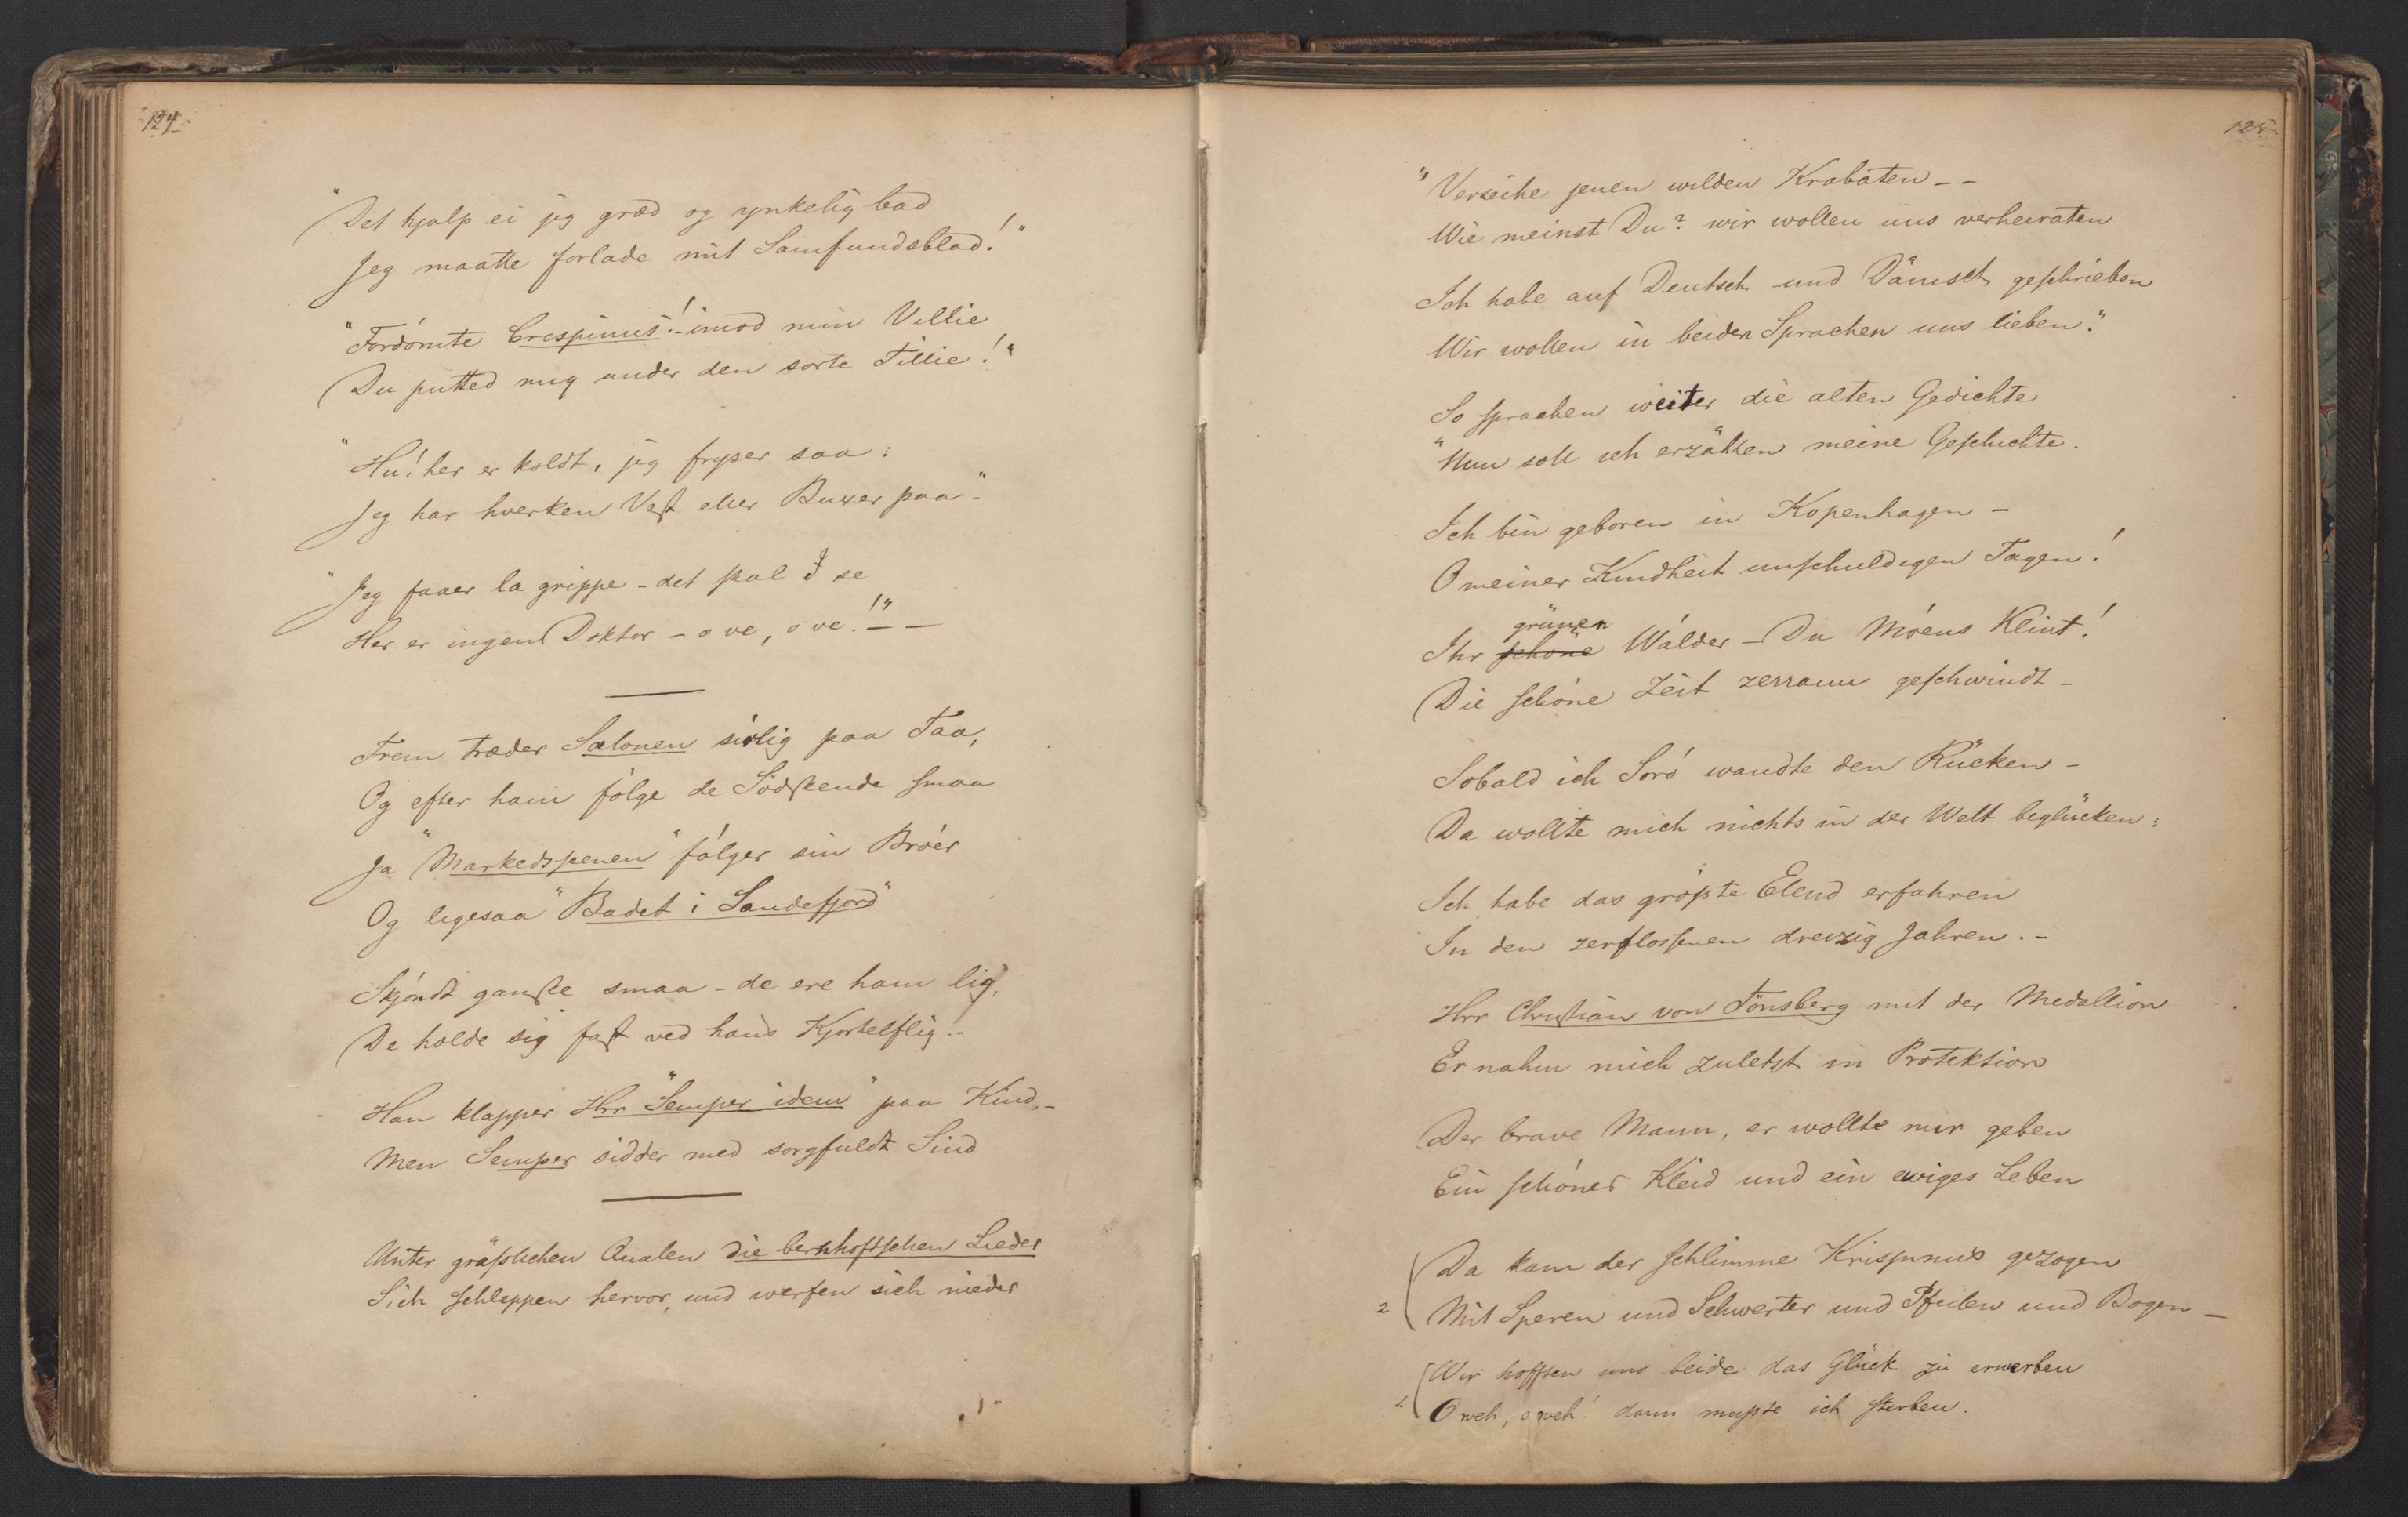 124
"Det hjalp ei jeg græd og ynkelig bad
Jeg maatte forlade mit Samfundsblad!"
"Fordömte Crespinus! - imod min Villie
Du putted mig under den sorte Tillie!"
"Hu! her er koldt, jeg fryser saa:
Jeg har hverken Vest eller Buxer paa" -
"Jeg faaer la grippe - det skal I se
Her er ingen Doktor - o ve, o ve!" — —
Frem træder Salonen sirlig paa Taa,
Og efter ham fölge de Södskende smaa
Ja "Markedsscenen" fölger sin Bröer
Og ligesaa "Badet i Sandefjord"
Skjöndt ganske smaa - de ere ham lig,
De holde sig fast ved hans Kjortelflig! -
Han klapper Hrr "Semper idem" paa Kind, -
Men Semper sidder med sorgfuldt Sind
Unter gräßlichen Qualen die bernhoftschen Lieder
Sich schleppen hervor, und werfen sich nieder
125
"Verzeihe jenen wilden Krabaten - -
Wie meinst Du? wir wollen uns verheiraten
Ich habe auf Deutsch und Dänisch geschrieben
Wir wollen in beiden Sprachen uns lieben."
So sprachen weiter die alten Gedichte
"Nun soll ich erzählen meine Geschichte.
Ich bin geboren in Kopenhagen -
O meiner Kindheit unschuldigen Tagen!
grünen
Ihr schöne Wälder - Du Möens Klint!
Die schöne Zeit zerrann geschwindt -
Sobald ich Sorö wandte den Rücken -
Da wollte mich nichts in der Welt beglücken:
Ich habe das größte Elend erfahren
In den zerflossenen dreizig Jahren. -
Hrr Christian von Tönsberg mit der Medallion
Er nahm mich zuletzt in Protektion
Der brave Mann, er wollte mir geben
Ein schönes Kleid und ein ewiges Leben
Da kam der schlimme Krispinus gezogen
2 Mit Speren und Schwerter und Pfeilen und Bogen -
Wir hofften uns beide das Glück zu erwerben
1. O weh, o weh! dann mußte ich sterben.